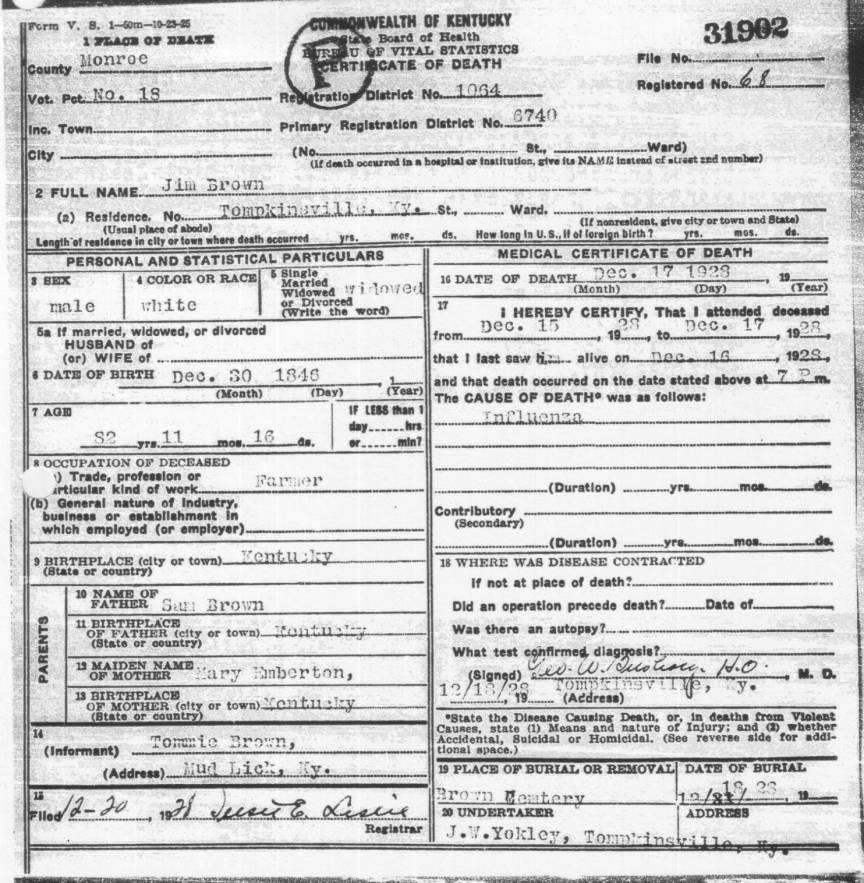 Form V. S. 1-50m-10-23-25
COMMONWEALTH OF KENTUCKY
State Board of Health
BUREAU OF VITAL STATISTICS
CERTIFICATE OF DEATH
31902
1 PLACE OF DEATH
County Monroe
File No.
Registered No. 68
Vot. Pct. No. 18
Registration District No. 1064
Inc. Town
Primary Registration District No. 6740
City
(No. St., Ward)
(If death occurred in a hospital or institution, give its NAME instead of street and number)
2 FULL NAME Jim Brown
(a) Residence. No. Tompkinsville, Ky. St., Ward.
(Usual place of abode) (If nonresident, give city or town and State)
Length of residence in city or town where death occurred yrs. mos. ds. How long in U. S., if of foreign birth? yrs. mos. ds.
PERSONAL AND STATISTICAL PARTICULARS
3 SEX male
4 COLOR OR RACE white
5 Single
Married
Widowed
or Divorced
(Write the word)
widowed
5a If married, widowed, or divorced
HUSBAND of
(or) WIFE of
6 DATE OF BIRTH Dec. 30 1846, 1
(Month) (Day) (Year)
7 AGE
82 yrs. 11 mos. 16 ds.
IF LESS than 1
day hrs
or min?
8 OCCUPATION OF DECEASED
) Trade, profession or
articular kind of work Farmer
(b) General nature of industry,
business or establishment in
which employed (or employer)
9 BIRTHPLACE (city or town) Kentucky
(State or country)
PARENTS
10 NAME OF
FATHER Sam Brown
11 BIRTHPLACE
OF FATHER (city or town) Kentucky
(State or country)
12 MAIDEN NAME
OF MOTHER Mary Emberton,
13 BIRTHPLACE
OF MOTHER (city or town) Kentucky
(State or country)
14
(Informant) Tommie Brown,
(Address) Mud Lick, Ky.
15
Filed 12-20, 1928 E. Leslie
Registrar
MEDICAL CERTIFICATE OF DEATH
16 DATE OF DEATH Dec. 17 1928, 19
(Month) (Day) (Year)
17
I HEREBY CERTIFY, That I attended deceased
from Dec. 15, 1928, to Dec. 17, 1928
that I last saw him alive on Dec. 16, 1928,
and that death occurred on the date stated above at 7 P m.
The CAUSE OF DEATH* was as follows:
Influenza
(Duration) yrs. mos. ds.
Contributory
(Secondary)
(Duration) yrs. mos. ds.
18 WHERE WAS DISEASE CONTRACTED
If not at place of death?
Did an operation precede death? Date of
Was there an autopsy?
What test confirmed diagnosis?
(Signed) Geo. W. H.O., M. D.
12/18/28, 19 (Address) Tompkinsville, Ky.
*State the Disease Causing Death, or, in deaths from Violent
Causes, state (1) Means and nature of Injury; and (2) whether
Accidental, Suicidal or Homicidal. (See reverse side for addi-
tional space.)
19 PLACE OF BURIAL OR REMOVAL
Brown Cemtery
DATE OF BURIAL
18 28
19
20 UNDERTAKER
J.W.Yokley, Tompkinsville, Ky.
ADDRESS